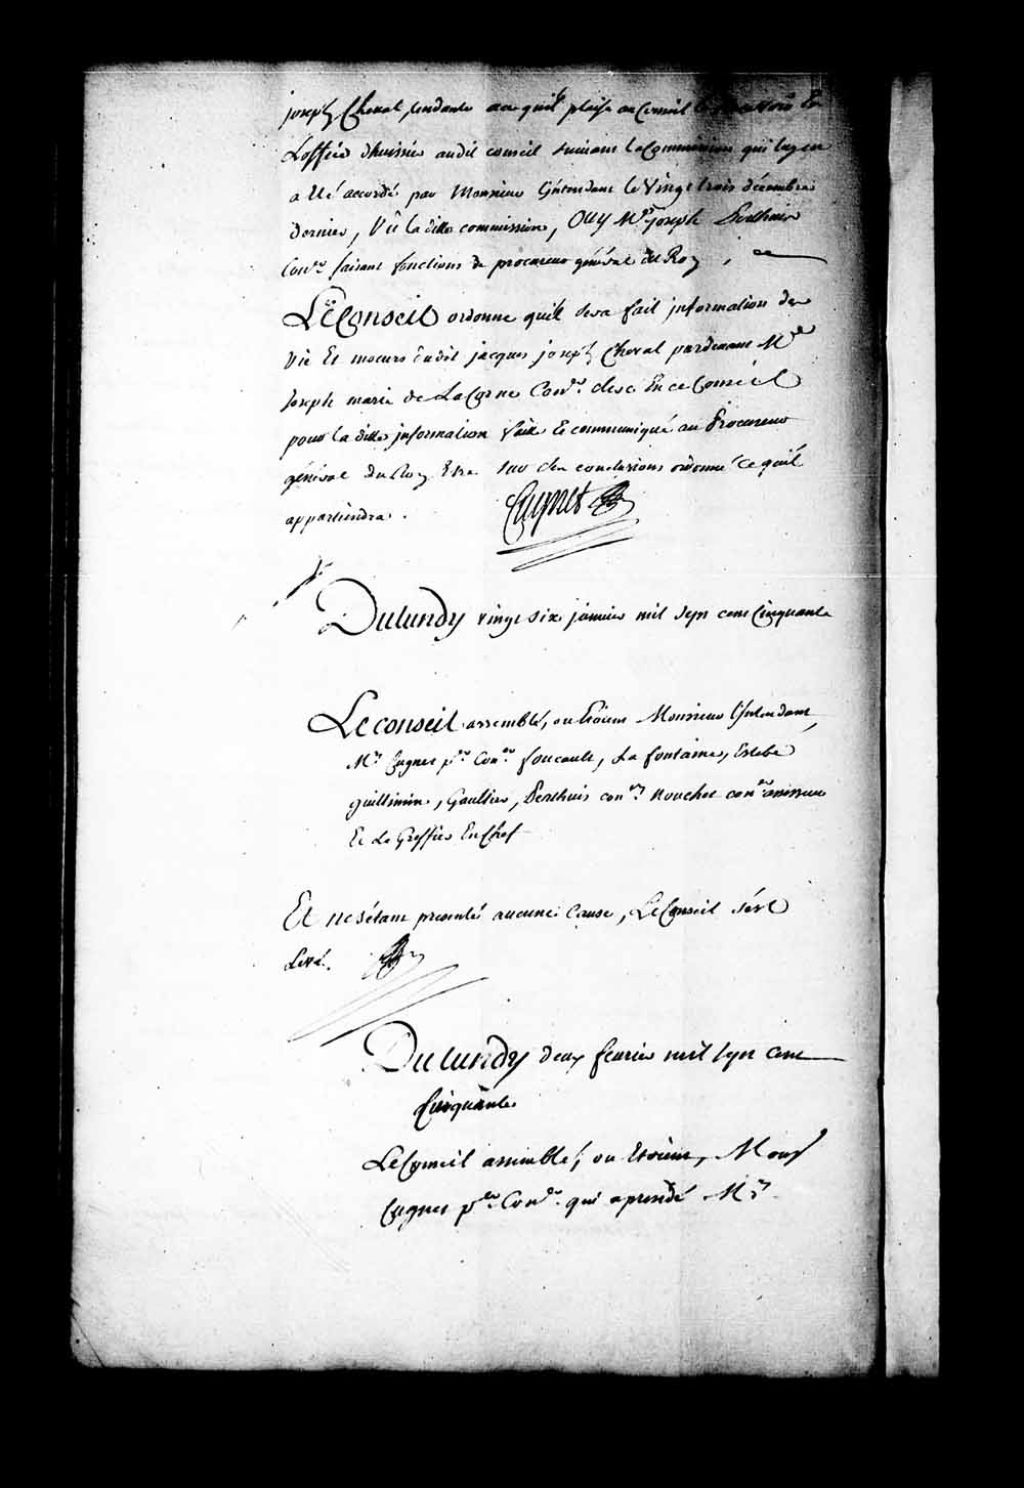 joseph Cheval, tendante ace quil plaise au Conseil le recevoir En
Loffice dhuissier audit conseil suivant la Commission qui luy en
a Eté accordé par Monsieur Lintendant le Vingt trois décembre
dernier, Vû la ditte commission, Ouy Me joseph Perthuis
Conr. faisant fonctions de procureur général du Roy,
LE Conseil ordonne quil sera fait jnformation des
Vie Et moeurs dudit jacques joseph Cheval pardevant Me
Joseph marie de La Corne Conr. clerc En ce Conseil
pour la ditte jnformation faite Et communiqué au Procureur
général du Roy Etre sur ses conclusions ordonné ce quil
appartiendra.
Cugnet
Du Lundy vingt six janvier mil sept cent Cinquante
Le conseil assemblé, ou Etoient Monsieur lIntendant,
Mrs Cugnet per Conr. foucault, La fontaine, Estebe
guillimin, Gaultier, Perthuis conrs. Nouchet conr assesseur
Et Le Greffier En Chef
Et ne sétant presenté aucune Cause, Le Conseil sést
Levé.
Du Lundy deux feuvrier mil sept cent
Cinquante
Le Conseil assemblé, ou Etoient, Monsr
Cugnet per Conr. qui a presidé Mrs